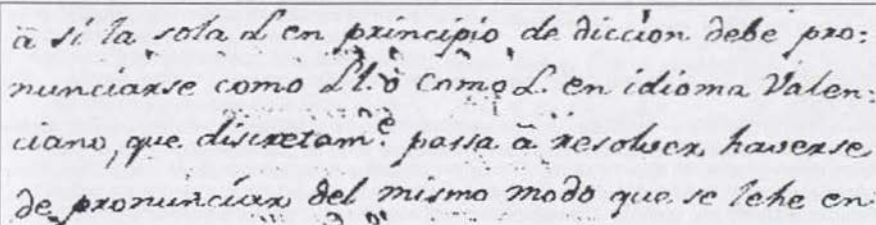 ã si la sola L en principio de diccion debe pro:
nunciarse como Ll. ò como L. en idioma Valen:
ciano, que discretam.ᵉ passa ã resolver, haverse
de pronunciar del mismo modo que se lehe en